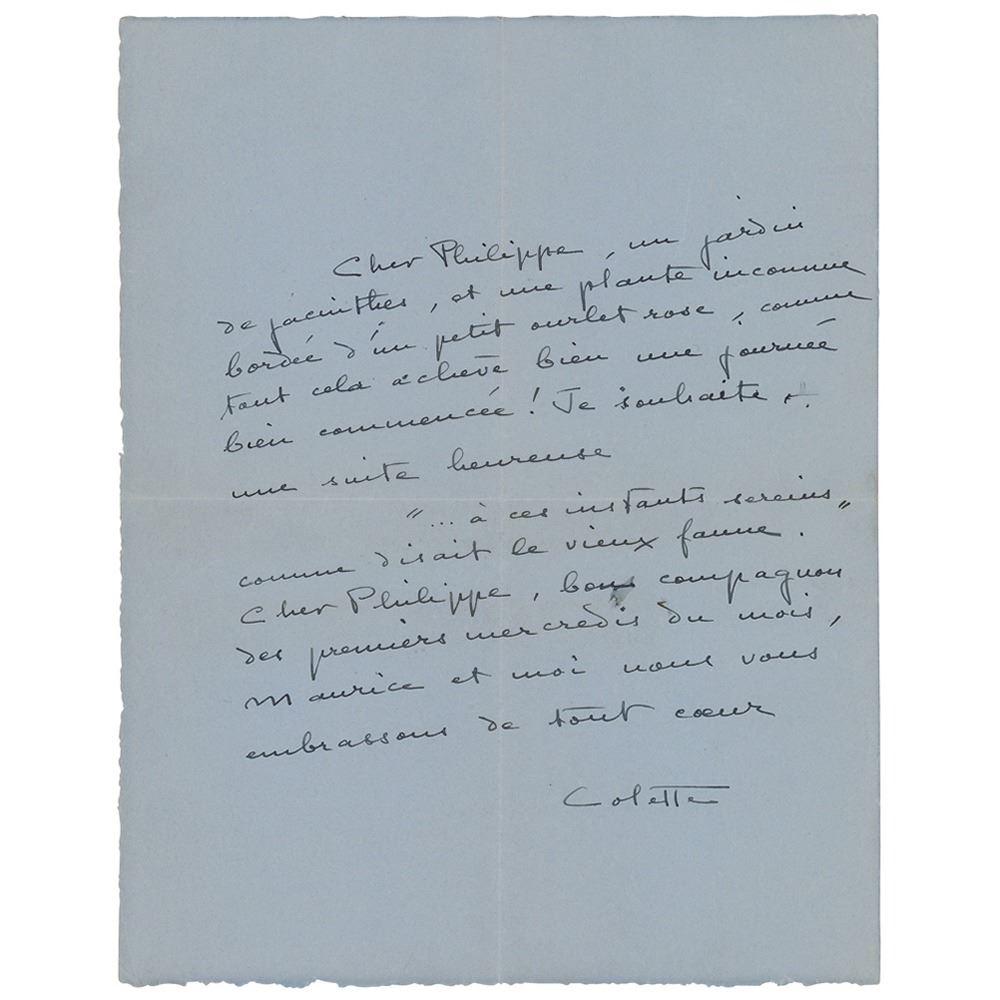 Cher Philippe, un jardin
de jacinthes, et une plante inconnue
bordée d'un petit ourlet rose, comme
tout cela achève bien une journée
bien commencée! Je souhaite
une suite heureuse
"... à ces instants sereins"
comme disait le vieux faune.
Cher Philippe, bon compagnon
des premiers mercredis du mois,
Maurice et moi nous vous
embrassons de tout cœur
Colette